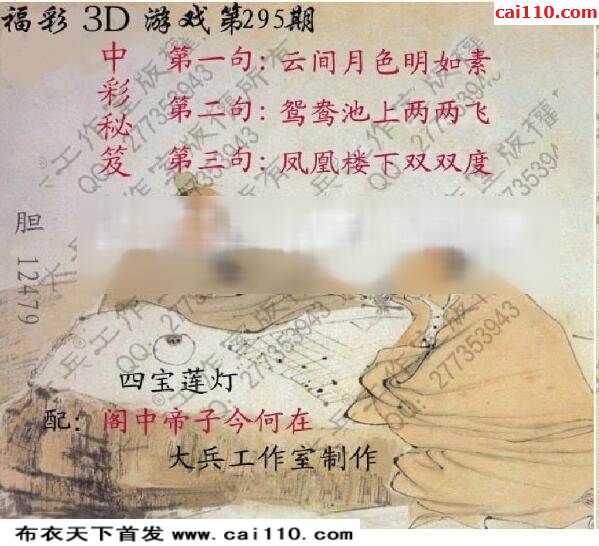 cai110.com
福彩 3D 游戏第295期
中彩秘笈
第一句：云间月色明如素
第二句：鸳鸯池上两两飞
第三句：凤凰楼下双双度
胆 12479
四宝莲灯
配：阁中帝子今何在
大兵工作室制作
布衣天下首发 www.cai110.com
兵®工作室版权所有
QQ:277353943